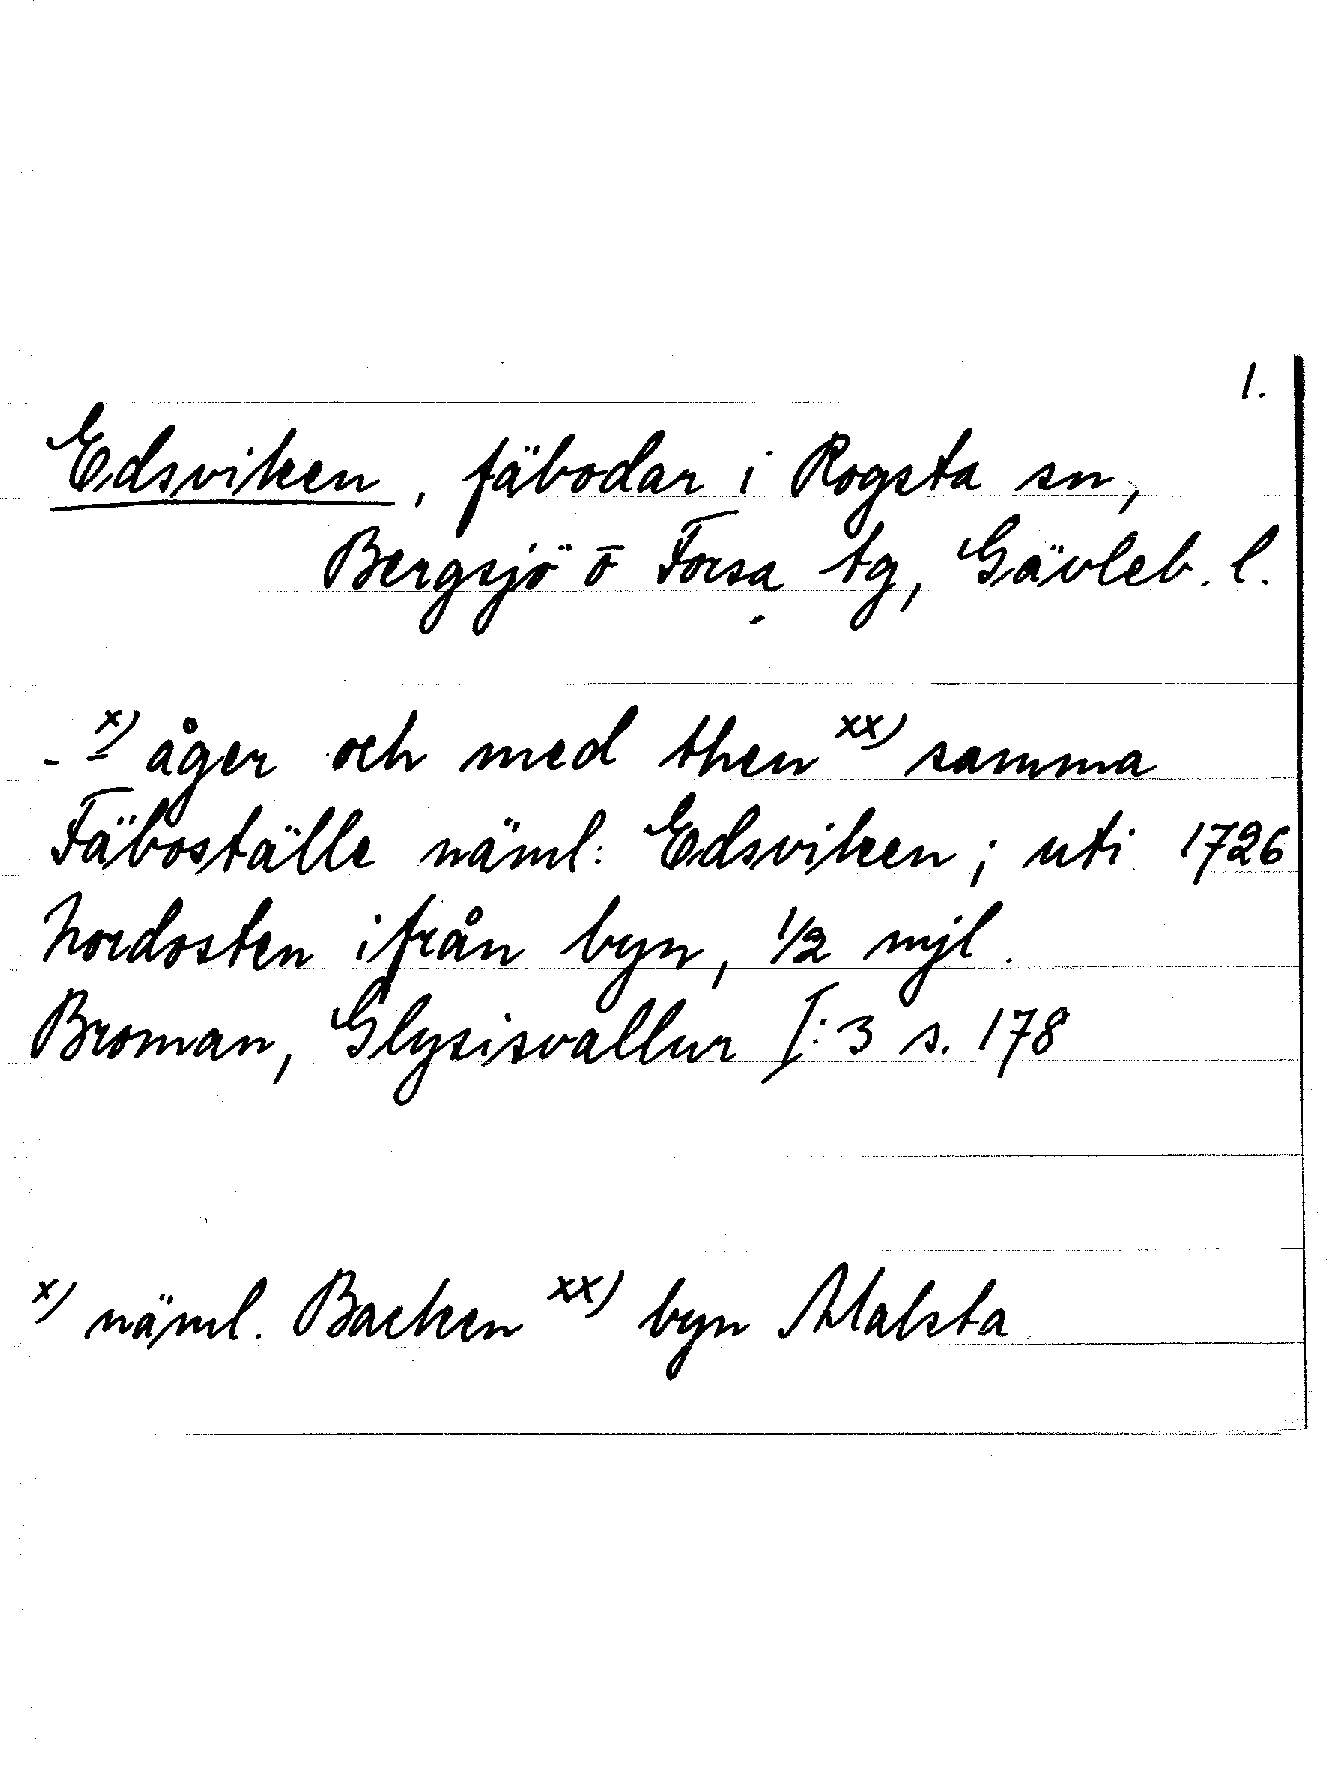 1.
Edsviken, fäbodar i Rogsta sn,
Bergsjö o Forsa tg, Gävleb. l.
- x) - åger och med then xx) samma
Fäboställe näml: Edsviken; uti 1726
Nordosten ifrån byn, 1/2 mjl.
Broman, Glysisvallur I:3 s. 178
x) näml. Backen xx) byn Malsta